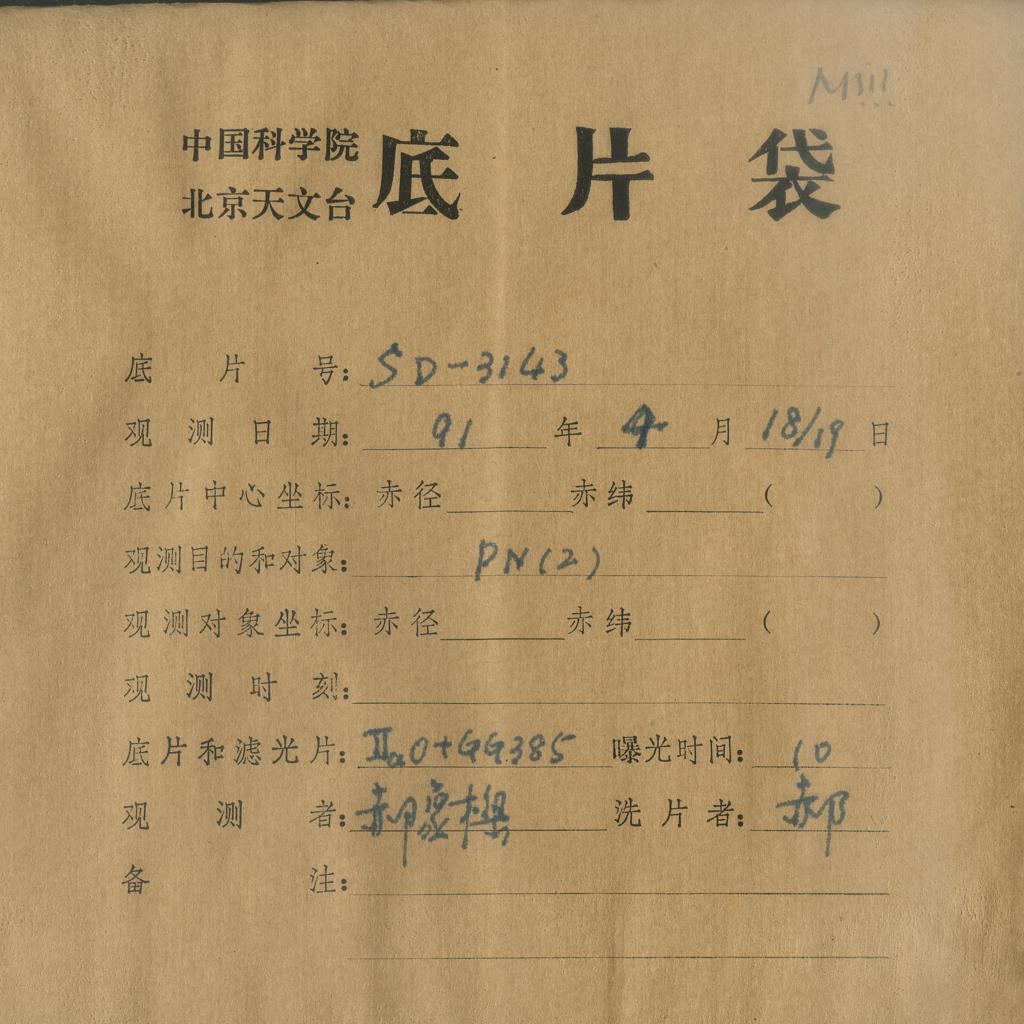 M!!!
中国科学院
北京天文台
底片袋
底片号: SD-3143
观测日期: 91 年 4 月 18/19 日
底片中心坐标: 赤径 赤纬 ( )
观测目的和对象: PN(2)
观测对象坐标: 赤径 赤纬 ( )
观测时刻:
底片和滤光片: IIaO+GG385 曝光时间: 10
观测者: 郝象樑 洗片者: 郝
备注: